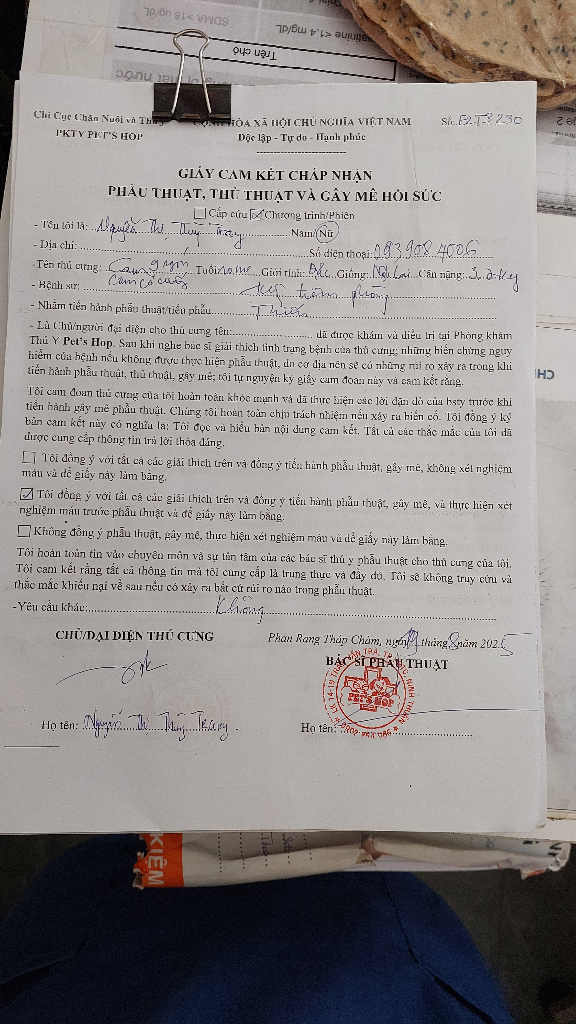 SDMA >18 ug/dL
<1.4 mg/dL
Trên chó
Chi Cục Chăn Nuôi và Thú Y
CỘNG HÒA XÃ HỘI CHỦ NGHĨA VIỆT NAM
Số:
PKTY PET'S HOP
Độc lập - Tự do - Hạnh phúc
GIẤY CAM KẾT CHẤP NHẬN
PHẪU THUẬT, THỦ THUẬT VÀ GÂY MÊ HỒI SỨC
Cấp cứu Chương trình/Phiên
- Tên tôi là: Nguyễn Thị Thùy Trang Nam/Nữ
- Địa chỉ: Số điện thoại:
- Tên thú cưng: Tuổi Giới tính: Đực Giống: Cân nặng: 3.2kg
- Bệnh sử:
- Nhằm tiến hành phẫu thuật/tiểu phẫu Thiến
- Là Chủ/người đại diện cho thú cưng tên: đã được khám và điều trị tại Phòng khám
Thú Y Pet's Hop. Sau khi nghe bác sĩ giải thích tình trạng bệnh của thú cưng; những biến chứng nguy
hiểm của bệnh nếu không được thực hiện phẫu thuật, do cơ địa nên sẽ có những rủi ro xảy ra trong khi
tiến hành phẫu thuật, thủ thuật, gây mê; tôi tự nguyện ký giấy cam đoan này và cam kết rằng.
Tôi cam đoan thú cưng của tôi hoàn toàn khỏe mạnh và đã thực hiện các lời dặn dò của bsty trước khi
tiến hành gây mê phẫu thuật. Chúng tôi hoàn toàn chịu trách nhiệm nếu xảy ra biến cố. Tôi đồng ý ký
bản cam kết này có nghĩa là: Tôi đọc và hiểu bản nội dung cam kết. Tất cả các thắc mắc của tôi đã
được cung cấp thông tin trả lời thỏa đáng.
Tôi đồng ý với tất cả các giải thích trên và đồng ý tiến hành phẫu thuật, gây mê, không xét nghiệm
máu và để giấy này làm bằng.
Tôi đồng ý với tất cả các giải thích trên và đồng ý tiến hành phẫu thuật, gây mê, và thực hiện xét
nghiệm máu trước phẫu thuật và để giấy này làm bằng.
Không đồng ý phẫu thuật, gây mê, thực hiện xét nghiệm máu và để giấy này làm bằng.
Tôi hoàn toàn tin vào chuyên môn và sự tận tâm của các bác sĩ thú y phẫu thuật cho thú cưng của tôi.
Tôi cam kết rằng tất cả thông tin mà tôi cung cấp là trung thực và đầy đủ. Tôi sẽ không truy cứu và
thắc mắc khiếu nại về sau nếu có xảy ra bất cứ rủi ro nào trong phẫu thuật.
-Yêu cầu khác: Không
CHỦ/ĐẠI DIỆN THÚ CƯNG
Phan Rang Tháp Chàm, ngày 19 tháng 8 năm 2025
BÁC SĨ PHẪU THUẬT
PET'S HOP
Họ tên: Nguyễn Thị Thùy Trang
Họ tên:
KIỂM